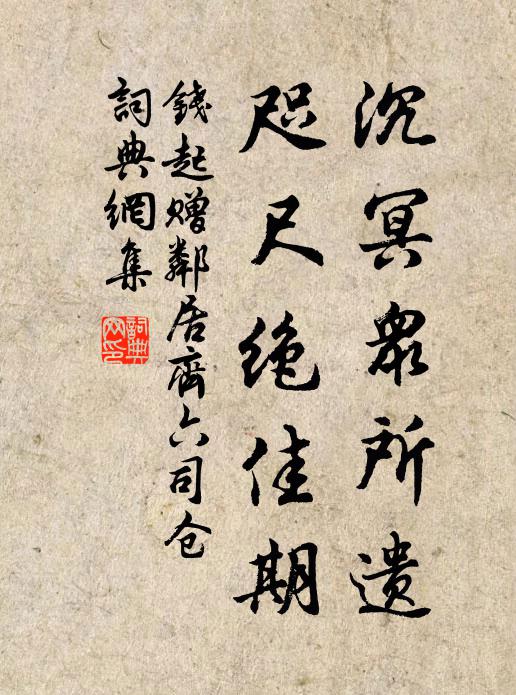 沉冥衆所遗
咫尺绝佳期
錢起赠鄰居齊六司仓
詞典網集
詞典
网印